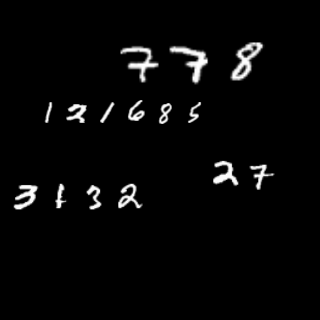 778
121685
27
3132